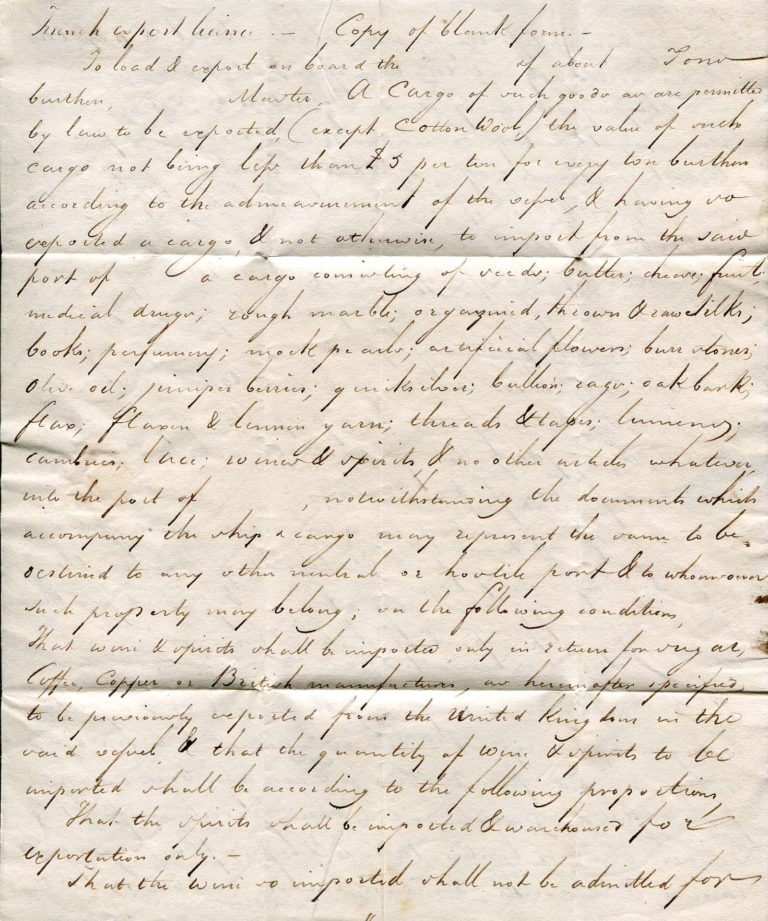 French export licence. — Copy of blank form. —
To load & export on board the of about Tons
burthen, Master, A Cargo of such goods as are permitted
by law to be exported, (except Cotton Wool,) the value of such
cargo not being less than £5 per ton for every ton burthen
according to the admeasurement of the vessel, & having so
exported a cargo, & not otherwise, to import from the said
port of a cargo consisting of seeds; butter; cheese; fruit;
medical drugs; rough marble; organzined, thrown & raw silks;
books; perfumery; mock pearls; artificial flowers; burr stones;
Olive oil; juniper berries; quicksilver; bullion; rags; oak bark;
flax; flaxen & linnen yarn; threads & tapes; linnens;
cambrics; lace; wines & spirits, & no other articles whatever,
into the port of , notwithstanding the documents which
accompany the ship & cargo may represent the same to be
destined to any other neutral or hostile port & to whomsoever
such property may belong; on the following conditions,
That wine & spirits shall be imported only in return for sugar,
Coffee, Copper or British manufactures, as hereinafter specified,
to be previously exported from the United Kingdom in the
said vessel & that the quantity of wine & spirits to be
imported shall be according to the following proportions,
That the spirits shall be imported & warehoused for
exportation only. —
That the wine so imported shall not be admitted for